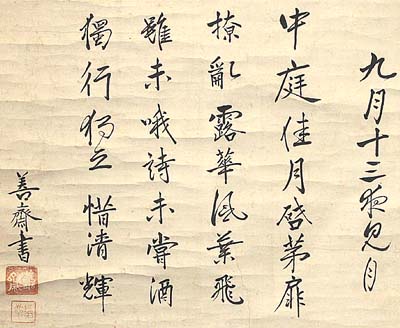 九月十三夜見月
中庭佳月啓茅扉
撩亂露華風葉飛
雖未哦詩未嘗酒
獨行獨立惜清輝
善齋書